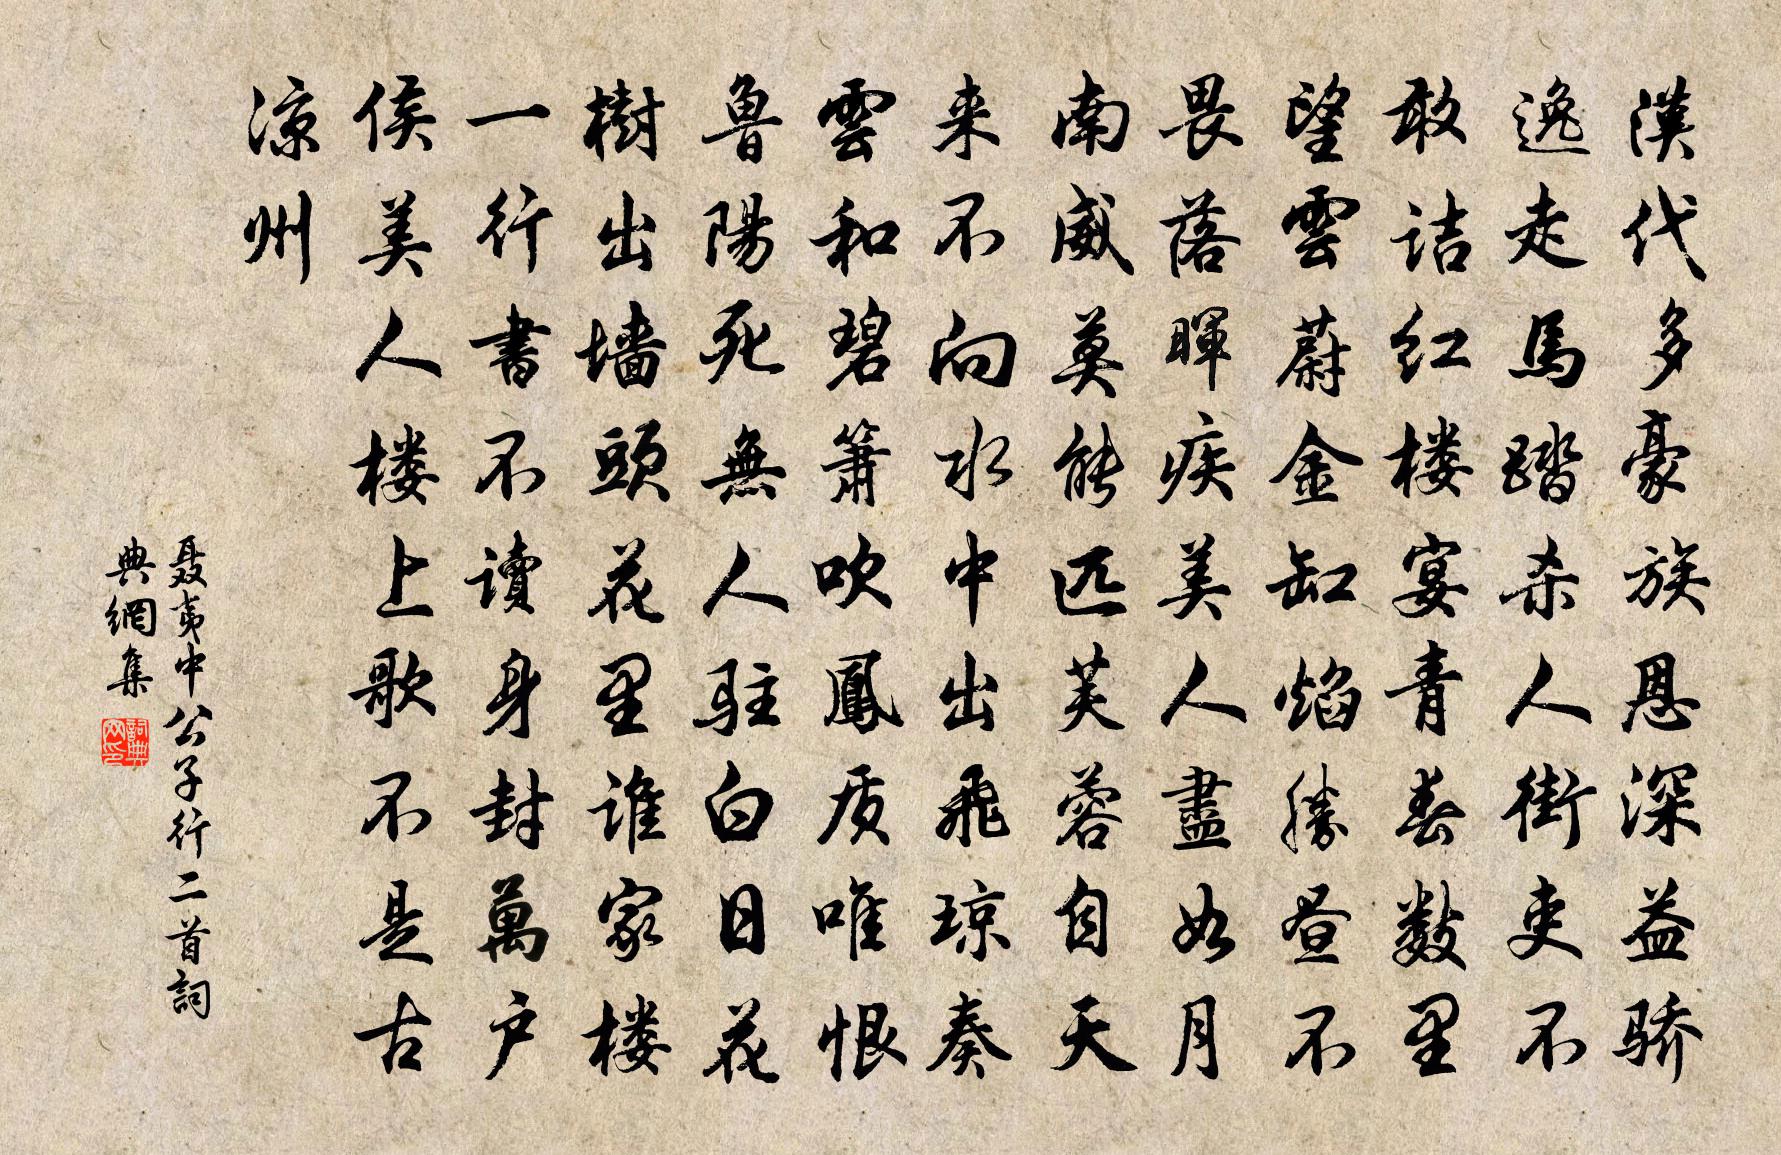 漢代多豪族恩深益骄
逸走馬踏杀人街吏不
敢诘红楼宴青春数里
望雲蔚金缸焰勝昼不
畏落暉疾美人盡如月
南威莫能匹芙蓉自天
来不向水中出飛琼奏
雲和碧箫吹鳳质唯恨
魯陽死無人駐白日花
樹出墙頭花里谁家楼
一行書不讀身封萬户
侯美人楼上歌不是古
凉州
聂夷中公子行二首詞
典網集
詞典网印